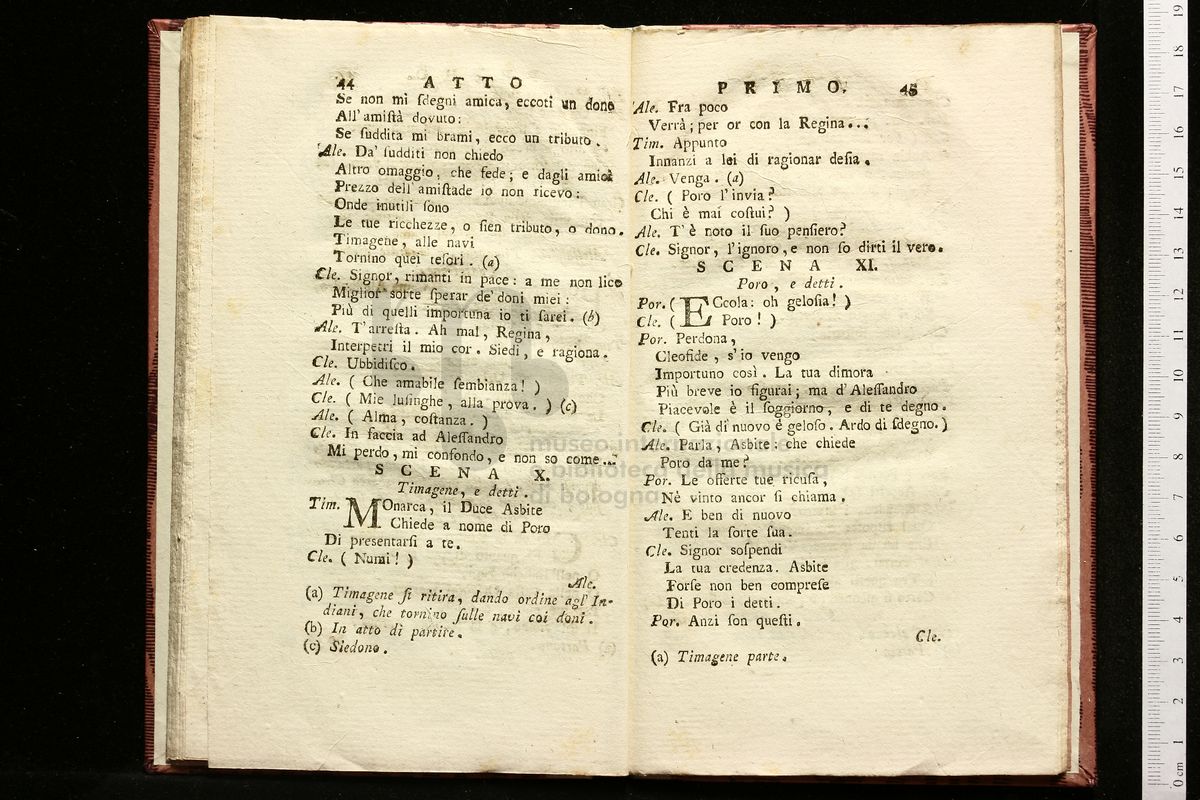 44 ATTO
Se non mi ſdegni amica, eccoti un dono
All'amiſtà dovuto:
Se ſuddita mi brami, ecco un tributo.
Ale. Da' ſudditi non chiedo
Altro omaggio, che fede; e dagli amici
Prezzo dell'amiſtade io non ricevo:
Onde inutili ſono
Le tue ricchezze, o ſien tributo, o dono.
Timagene, alle navi
Tornino quei teſori. (a)
Cle. Signor, rimanti in pace: a me non lice
Miglior ſorte ſperar de' doni miei:
Più di quelli importuna io ti ſarei. (b)
Ale. T'arreſta. Ah mal, Regina,
Interpetri il mio cor. Siedi, e ragiona.
Cle. Ubbidiſco.
Ale. ( Che amabile ſembianza! )
Cle. ( Mie luſinghe, alla prova. ) (c)
Ale. ( Alma, coſtanza. )
Cle. In faccia ad Aleſſandro
Mi perdo, mi confondo, e non so come...
SCENA X.
Timagene, e detti.
Tim. MOnarca, il Duce Asbite
Chiede a nome di Poro
Di preſentarſi a te.
Cle. ( Numi! )
Ale.
(a) Timagene ſi ritira, dando ordine agl'In-
diani, che tornino ſulle navi coi doni.
(b) In atto di partire.
(c) Siedono.
PRIMO. 45
Ale. Fra poco
Verrà; per or con la Regina...
Tim. Appunto
Innanzi a lei di ragionar deſia.
Ale. Venga. (a)
Cle. ( Poro l'invia?
Chi è mai coſtui? )
Ale. T'è noto il ſuo penſiero?
Cle. Signor, l'ignoro, e non ſo dirti il vero.
SCENA XI.
Poro, e detti.
Por. ( ECcola: oh geloſia! )
Cle. ( Poro! )
Por. Perdona,
Cleofide, s'io vengo
Importuno così. La tua dimora
Più breve io figurai; ma d'Aleſſandro
Piacevole è il ſoggiorno, e di te degno.
Cle. ( Già di nuovo è geloſo. Ardo di ſdegno. )
Ale. Parla, Asbite: che chiede
Poro da me?
Por. Le offerte tue ricuſa,
Nè vinto ancor ſi chiama.
Ale. E ben di nuovo
Tenti la ſorte ſua.
Cle. Signor soſpendi
La tua credenza. Asbite
Forſe non ben compreſe
Di Poro i detti.
Por. Anzi ſon queſti.
Cle.
(a) Timagene parte.
museo internazionale
biblioteca della musica
di bologna
0 cm 1 2 3 4 5 6 7 8 9 10 11 12 13 14 15 16 17 18 19